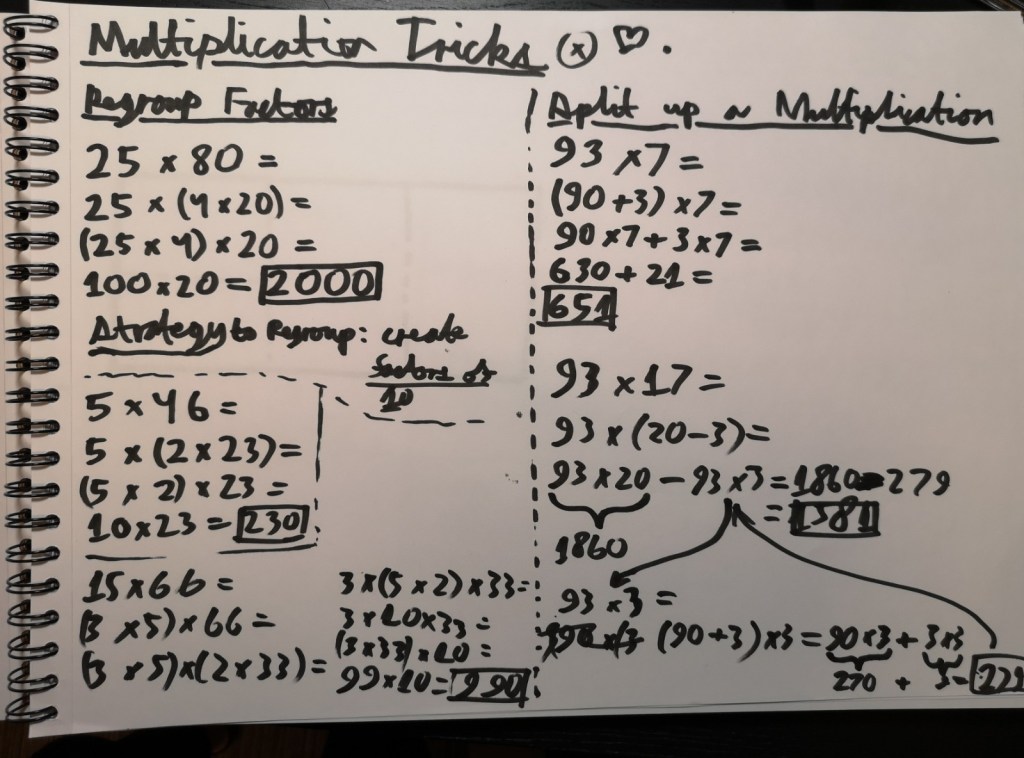 Multiplication Tricks (x) ♡.
Regroup Factors
25 x 80 =
25 x (4 x 20) =
(25 x 4) x 20 =
100 x 20 = 2000
Strategy to Regroup: create
factors of
10
5 x 46 =
5 x (2 x 23) =
(5 x 2) x 23 =
10 x 23 = 230
15 x 66 =
(3 x 5) x 66 =
(3 x 5) x (2 x 33) =
3 x (5 x 2) x 33 =
3 x 10 x 33 =
(3 x 33) x 10 =
99 x 10 = 990
Split up a Multiplication
93 x 7 =
(90 + 3) x 7 =
90 x 7 + 3 x 7 =
630 + 21 =
651
93 x 17 =
93 x (20 - 3) =
93 x 20 - 93 x 3 = 1860 - 279
= 1581
1860
93 x 3 =
(90 + 3) x 3 = 90 x 3 + 3 x 3
270 + 9 = 279